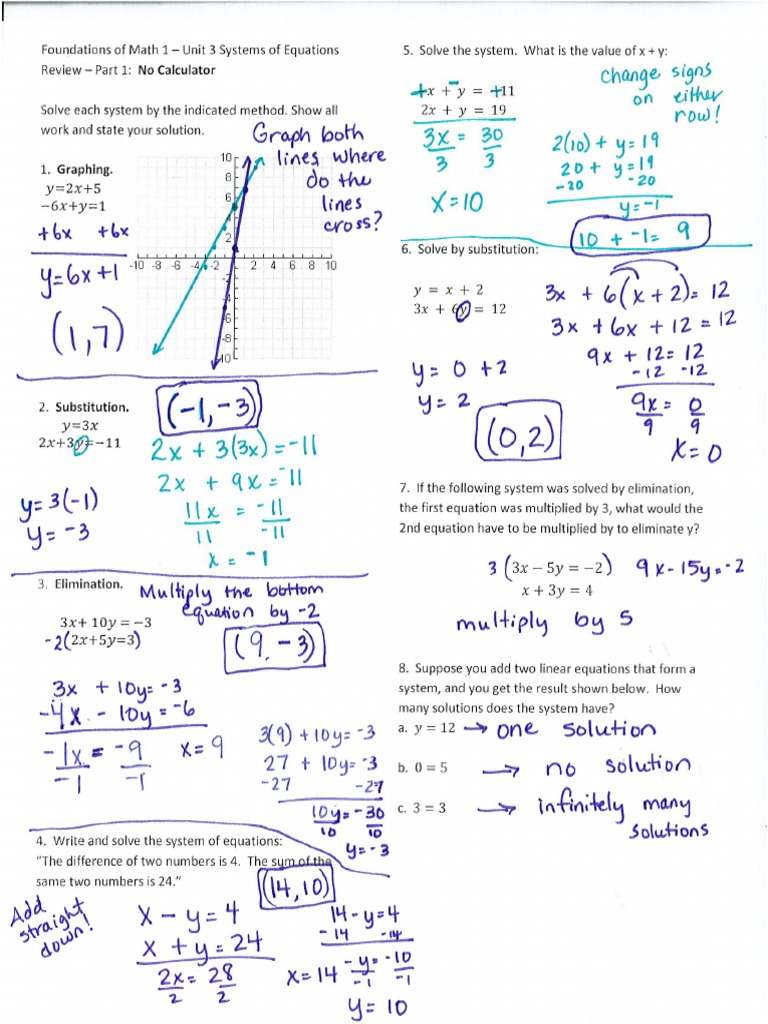 Foundations of Math 1 – Unit 3 Systems of Equations
Review – Part 1: No Calculator
Solve each system by the indicated method. Show all
work and state your solution.
Graph both
lines where
do the
lines
cross?
1. Graphing.
y=2x+5
−6x+y=1
+6x +6x
y=6x+1
(1,7)
10
8
6
4
2
-10 -8 -6 -4 -2 2 4 6 8 10
-2
-4
-6
-8
-10
2. Substitution.
y=3x
2x+3y=−11
(-1,-3)
2x + 3(3x) = -11
2x + 9x = -11
11x = -11
11 -11
x = -1
y= 3(-1)
y= -3
3. Elimination.
Multiply the bottom
equation by -2
3x+ 10y = −3
-2(2x+5y=3)
(9,-3)
3x + 10y= -3
-4x - 10y = -6
-1x = -9
-1 -1
x= 9
3(9) + 10y= -3
27 + 10y= -3
-27 -27
10y= -30
10 10
y= -3
4. Write and solve the system of equations:
"The difference of two numbers is 4. The sum of the
same two numbers is 24."
(14,10)
Add
straight
down!
x - y = 4
x + y = 24
2x = 28
2 2
x= 14
14 - y=4
-14 -14
-y= -10
-1 -1
y= 10
5. Solve the system. What is the value of x + y:
+x + − y = +11
2x + y = 19
change signs
on either
row!
3x = 30
3 3
x=10
2(10) + y= 19
20 + y=19
-20 -20
y= -1
10 + -1= 9
6. Solve by substitution:
y = x + 2
3x + 6y = 12
3x + 6(x + 2)= 12
3x + 6x + 12 = 12
9x + 12= 12
-12 -12
9x = 0
9 9
x= 0
y= 0 +2
y= 2
(0,2)
7. If the following system was solved by elimination,
the first equation was multiplied by 3, what would the
2nd equation have to be multiplied by to eliminate y?
3 (3x – 5y = –2) 9x-15y=-2
x + 3y = 4
multiply by 5
8. Suppose you add two linear equations that form a
system, and you get the result shown below. How
many solutions does the system have?
a. y = 12 → one solution
b. 0 = 5 → no solution
c. 3 = 3 → infinitely many
solutions